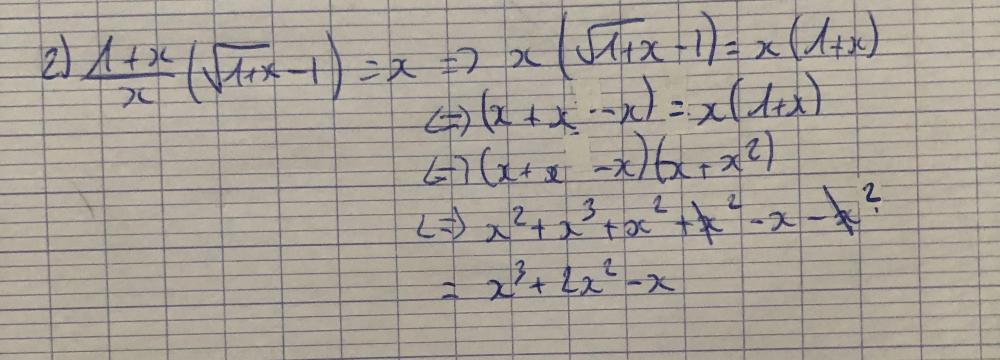 2) \frac{1+x}{x} (\sqrt{1+x} - 1) = x => x (\sqrt{1+x} - 1) = x (1+x)
<=> (x + x - x) = x (1+x)
<=> (x + x - x)(x + x²)
<=> x² + x³ + x² + x² - x - x²
= x³ + 2x² - x